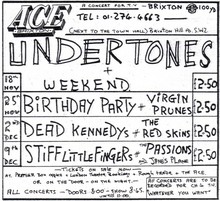 ACE
A CONCERT FOR T.V
BRIXTON
TEL: 01-274-4663
(NEXT TO THE TOWN HALL) BRIXTON HILL S.W.2
UNDERTONES
+
18TH NOV
WEEKEND
£2.50
25TH NOV
BIRTHDAY PARTY + VIRGIN PRUNES
£2.50
2ND DEC
DEAD KENNEDYS + THE RED SKINS
£2.50
9TH DEC
STIFF LITTLE FINGERS + THE PASSIONS
£2.50
TICKETS ON SALE NOW
AT PREMIER BOX OFFICE + LONDON THEATRE BOOKINGS + ROUGH TRADE + THE ACE
OR ON THE DOOR - ON THE NIGHT
ALL CONCERTS - DOORS
CONCERTS ARE TO BE RECORDED FOR CH 4 TO WHATEVER